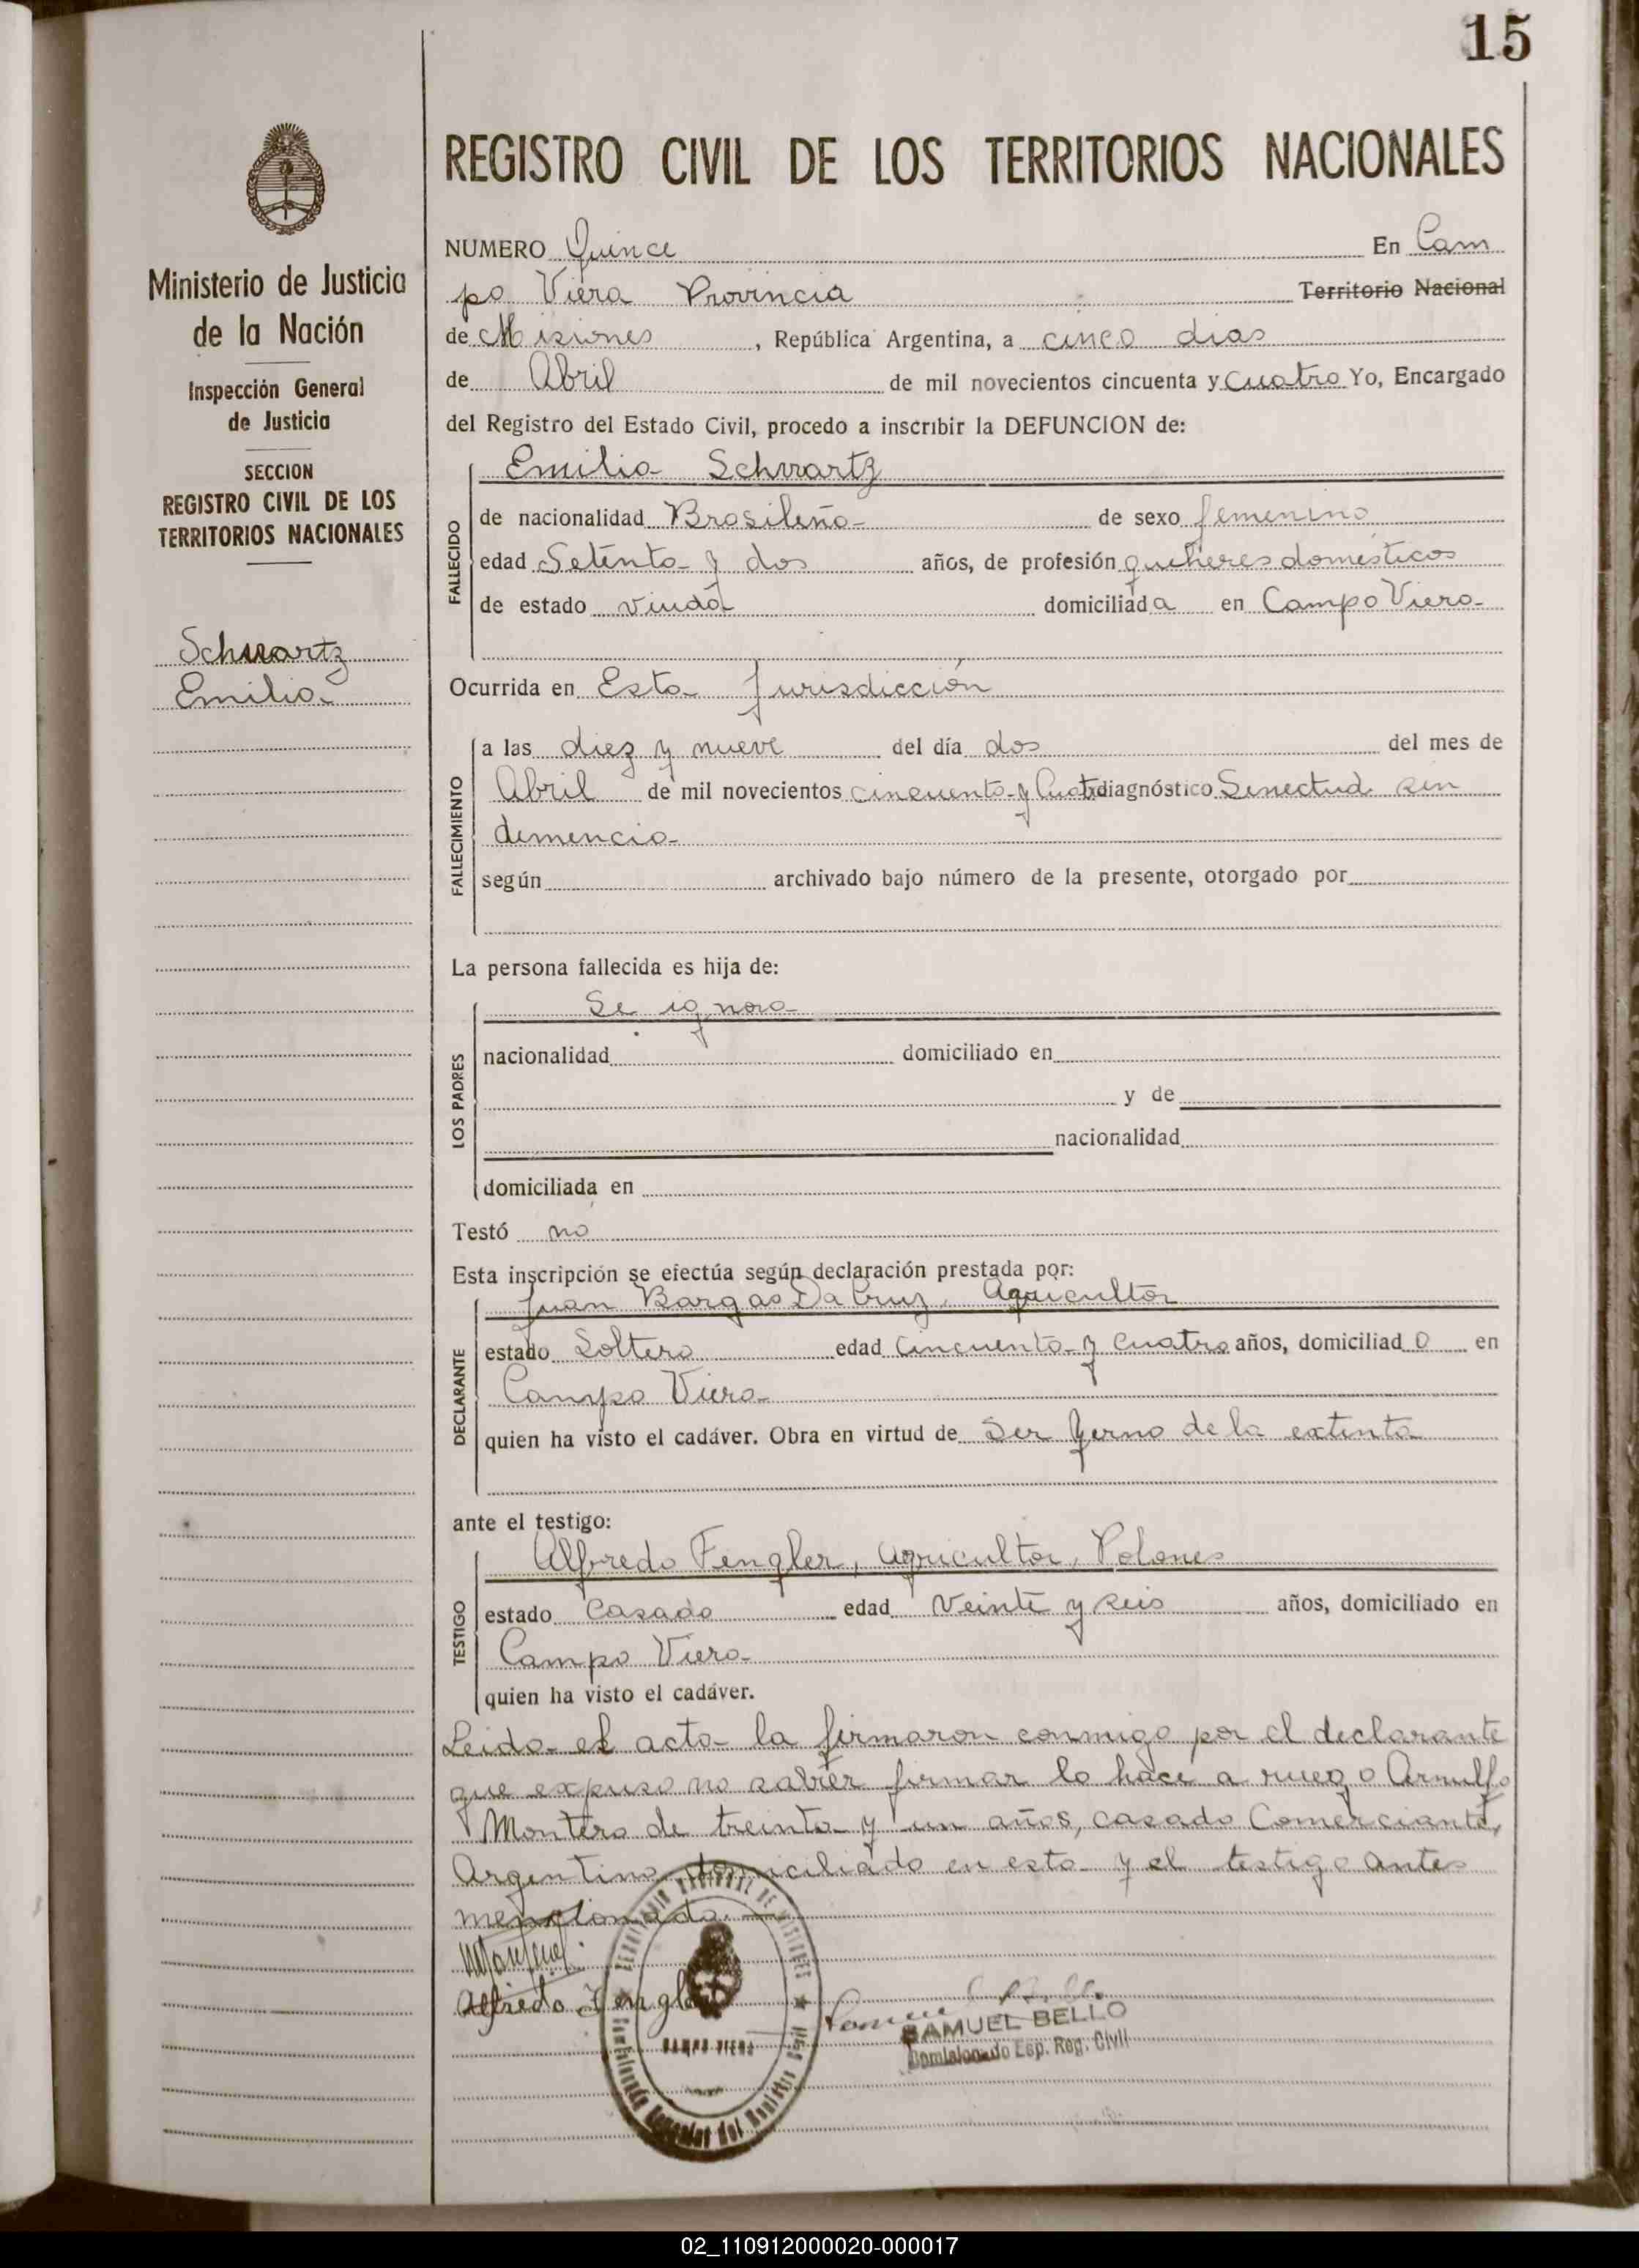 15
REGISTRO CIVIL DE LOS TERRITORIOS NACIONALES
Ministerio de Justicia
de la Nación
Inspección General
de Justicia
SECCION
REGISTRO CIVIL DE LOS
TERRITORIOS NACIONALES
Schwartz
Emilia
NUMERO Quince En Cam
po Viera Provincia Territorio Nacional
de Misiones, República Argentina, a cinco dias
de Abril de mil novecientos cincuenta y Cuatro Yo, Encargado
del Registro del Estado Civil, procedo a inscribir la DEFUNCION de:
FALLECIDO
Emilia Schwartz
de nacionalidad Brasileña de sexo femenino
edad Setenta y dos años, de profesión quehéres domésticos
de estado viuda domiciliada en Campo Viera
Ocurrida en Esta Jurisdicción
FALLECIMIENTO
a las diez y nueve del día dos del mes de
Abril de mil novecientos cincuenta y Cuatro diagnóstico Senectud sin
demencia
según archivado bajo número de la presente, otorgado por
La persona fallecida es hija de:
LOS PADRES
Se ignora
nacionalidad domiciliado en
y de
nacionalidad
domiciliada en
Testó no
Esta inscripción se efectúa según declaración prestada por:
DECLARANTE
Juan Bargas Da Cruz, Agricultor
estado Soltero edad Cincuenta y Cuatro años, domiciliado en
Campo Viera
quien ha visto el cadáver. Obra en virtud de Ser Yerno de la extinta
ante el testigo:
TESTIGO
Alfredo Fengler, Agricultor, Polones
estado Casado edad Veinte y seis años, domiciliado en
Campo Viera
quien ha visto el cadáver.
Leida el acta la firmaron conmigo por el declarante
que expuso no sabér firmar lo hace a ruego Arnulfo
Montero de treinta y un años, casado Comerciante,
Argentino domiciliado en esta y el testigo antes
mencionado.
Alfredo Fengler
CAMPO VIERA
SAMUEL BELLO
Comisionado Esp. Reg. Civil
02_110912000020-000017